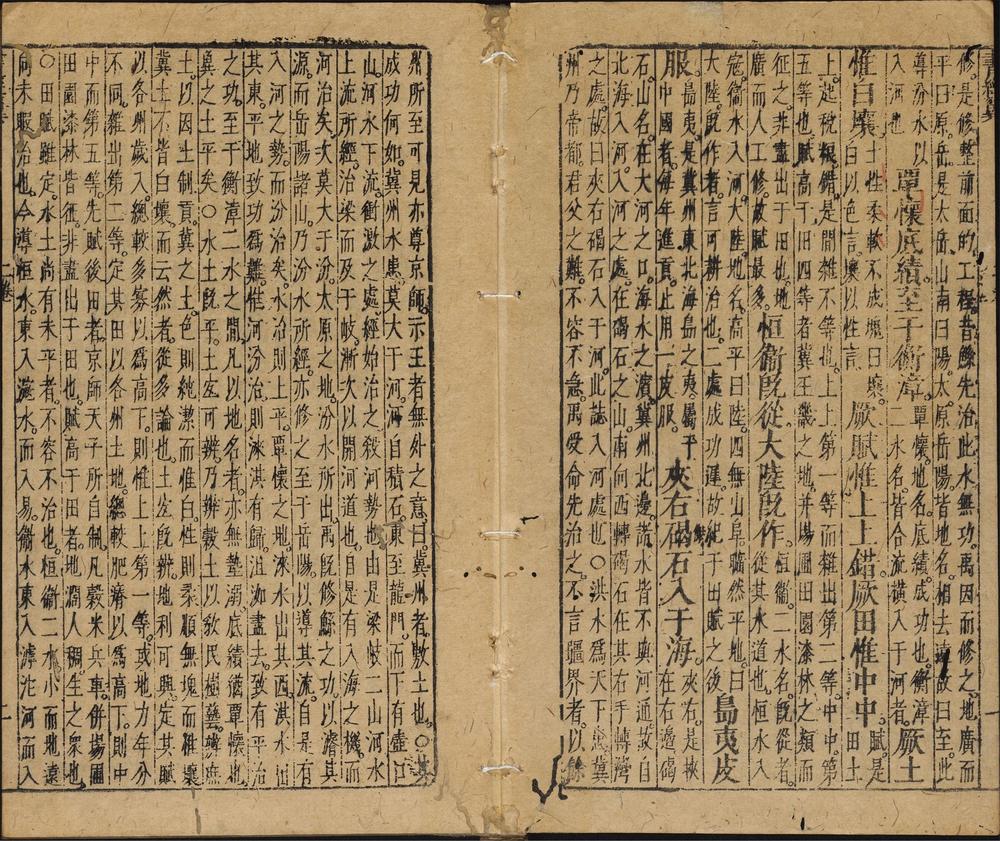 修。是修整前面的工程。昔鯀先治此水無功。禹因而修之。地廣而
平曰原。岳是太岳。山南曰陽。太原岳陽皆地名。相去遠。故曰至此
導汾水以
入河尊也
覃懷底績至于衡漳。
覃懷。地名。底績。成功也。衡漳
二水名。皆合流橫入于河者。
厥土
惟白壤
土性柔軟。不成塊曰壤。
白以色言。壤以性言。
厥賦惟上上錯厥田惟中中。
賦。是
田土
上起稅糧。錯。是間雜不等也。上上。第一等。而雜出第二等。中中。第
五等也。賦高于田四等者。冀王畿之地。并場圃田園漆林之類而
征之。非盡出于田也。地
廣而人工修。故賦最多。
恒衞既從大陸既作。
恒衞。二水名。既從者。
從其水道也。恒水入
宼。衞水入河。大陸。地名。高平曰陸。四無山阜。曠然平地。曰
大陸。既作者。言可耕治也。二處成功遲。故紀于田賦之後
島夷皮
服
島夷。是冀州東北海島之夷。屬于
中國者。每年進貢。上用一皮服。
夾右碣石入于海。
夾右。是挾
在右邊。碣
石。山名。在大河之口。海水之濱。冀州北邊諸水。皆不與河通。故自
北海入河。入河之處。在碣石之山。南向西轉。碣石在其右手轉灣
之處。故曰夾右碣石入于河。此誌入河處也。○洪水爲天下患。冀
州乃帝都。君父之難。不容不急。禹受命先治之。不言疆界者。以餘
州所至可見。亦尊京師。示王者無外之意曰。冀州者。敷土也。○其
成功何如。冀州水患。莫大于河。河自積石。東至龍門。而下有壺口
山。河水下流衝激之處。經始治之。殺河勢也。由是梁岐二山。河水
上流所經。治梁而及于岐。漸次以開河道也。自是有入海之機。而
河治矣。次莫大于汾。太原之地。汾水所出。禹既修鯀之功。濬其
源。而岳陽諸山。乃汾水所經。亦修之至于岳陽。以導其流。自是有
入河之勢。而汾治矣。水治則上平。覃懷之地。淶水出其西。淇水出
其東。平地致功爲難。惟河汾治。則淶淇有歸。沮洳盡去。致有平治
之功。至于衡漳二水之間。凡以地名者。亦無墊溺。底績猶覃懷也。
冀之土平矣。○水土既平。土宐可辨。乃辨穀土。以敎民樹藝。辨庶
土。以因土制貢。冀之土。色則純潔而惟白。性則柔順無塊而惟壤。
冀土不皆白壤。而云然者。從多論也。土宐既辨。地利可興。定其賦
以各州歲入。總較多寡。以爲高下。則惟上上第一等。或地力年分
不同。雜出第二等。定其田。以各州土地。總較肥瘠。以爲高下。則中
中而第五等。先賦後田者。京師天子所自制。凡穀米兵車。併場圃
田園漆林皆征。非盡出于田也。賦高于田者。地濶人稠。生之衆也。
○田賦雖定。水土尚有未平者。不容不治也。恒衞二水。小而地遠
向未暇治也。今導恒水。東入滱水。而入易。衞水東入滹沱河而入